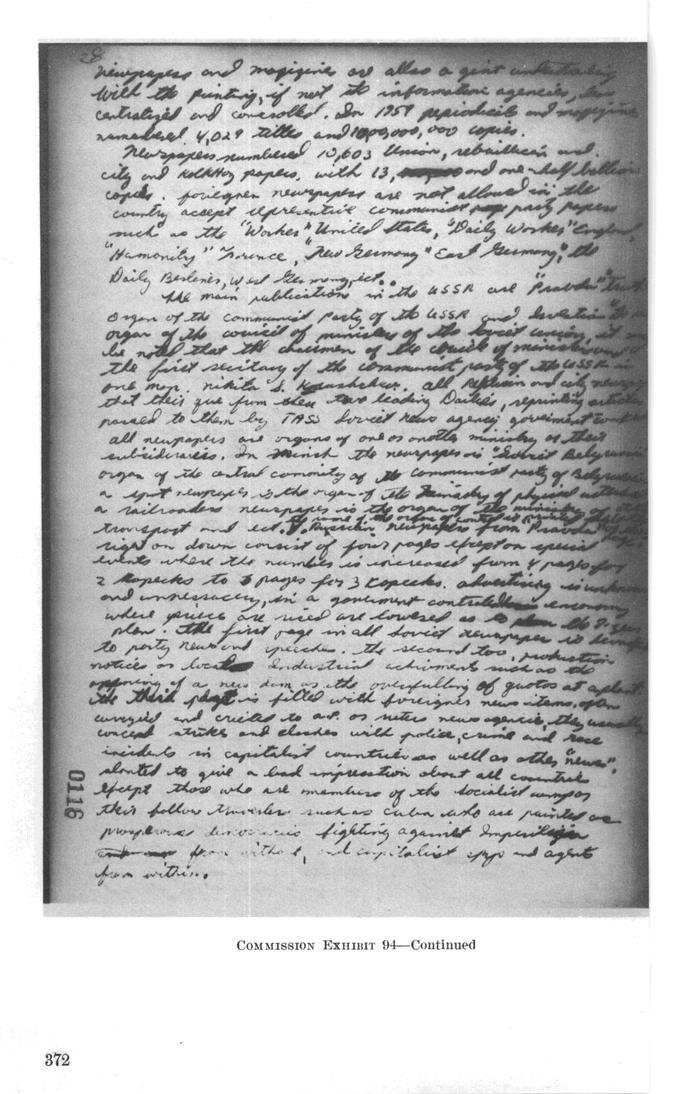 28
Newspapers and magizines are allso a gint undertaking
with the printing, if not the information agencies,
centralized and conerolled. In 1959 periodicels and magizines
namebered 4,029 titles and
Newspapers numbered 10,603 Union,
city and Kolkhoz papers, with 13, and one-half billion
copies. foriegner newspapers are not allowed in the
country accept representive communist party papers
such as the "Worker" United States, "Daily Worker" England,
"Humanity" France, "New Germany" East Germany", the
Daily Berliner, West Germany,ect..
The main publications in the USSR are "Pravda" "Truth
Organ of the communist party of the USSR and the
organ of the council of ministers of the Soviet union, it
be noted that the chairmen of the council of ministers and
the first secritary of the communist party of the USSR is
one man. nikita S. all and city
that their que from these two leading Dailies, reprinting articles
passed to them by TASS Soviet news agency goveriment
all newpapers are organs of one or another ministry or their
subsideraries. In Minsk the newspaper is "Soviet
organ of the central commity of the communist party of
a sport newspaper is the organ of the ministry of physical
a railroaders newspaper is the organ of the ministry of
transport and ect. newspapers from Pravda
right on down consist of four pages except on special
events where the number is increased from 4 pages for
2 Kopecks to 6 pages for 3 Kopecks. advertising is
and unnessacery, in a goverment controled economy
where prices are used are lowered as to the 7-year
plan. the first page in all Soviet newspaper is
to party news and speeches. the second two, production
notices or local Industrial achiments such as the
opening of a new dam or the overfulling of quotos at a plant.
the third page is filled with foriegner news items, often
and to a.p. or news agencies, they usually
strikes and clashes with police, crime and race
incidents in capitalist countries as well as other "news",
slanted to give a bad impression about all countries
except those who are members of the socialist camp or
their follow travelers such as Cuba who are painted as
fighting against Imperilism
from without, and capitalist spys and agents
from within.
0116
COMMISSION EXHIBIT 94—Continued
372